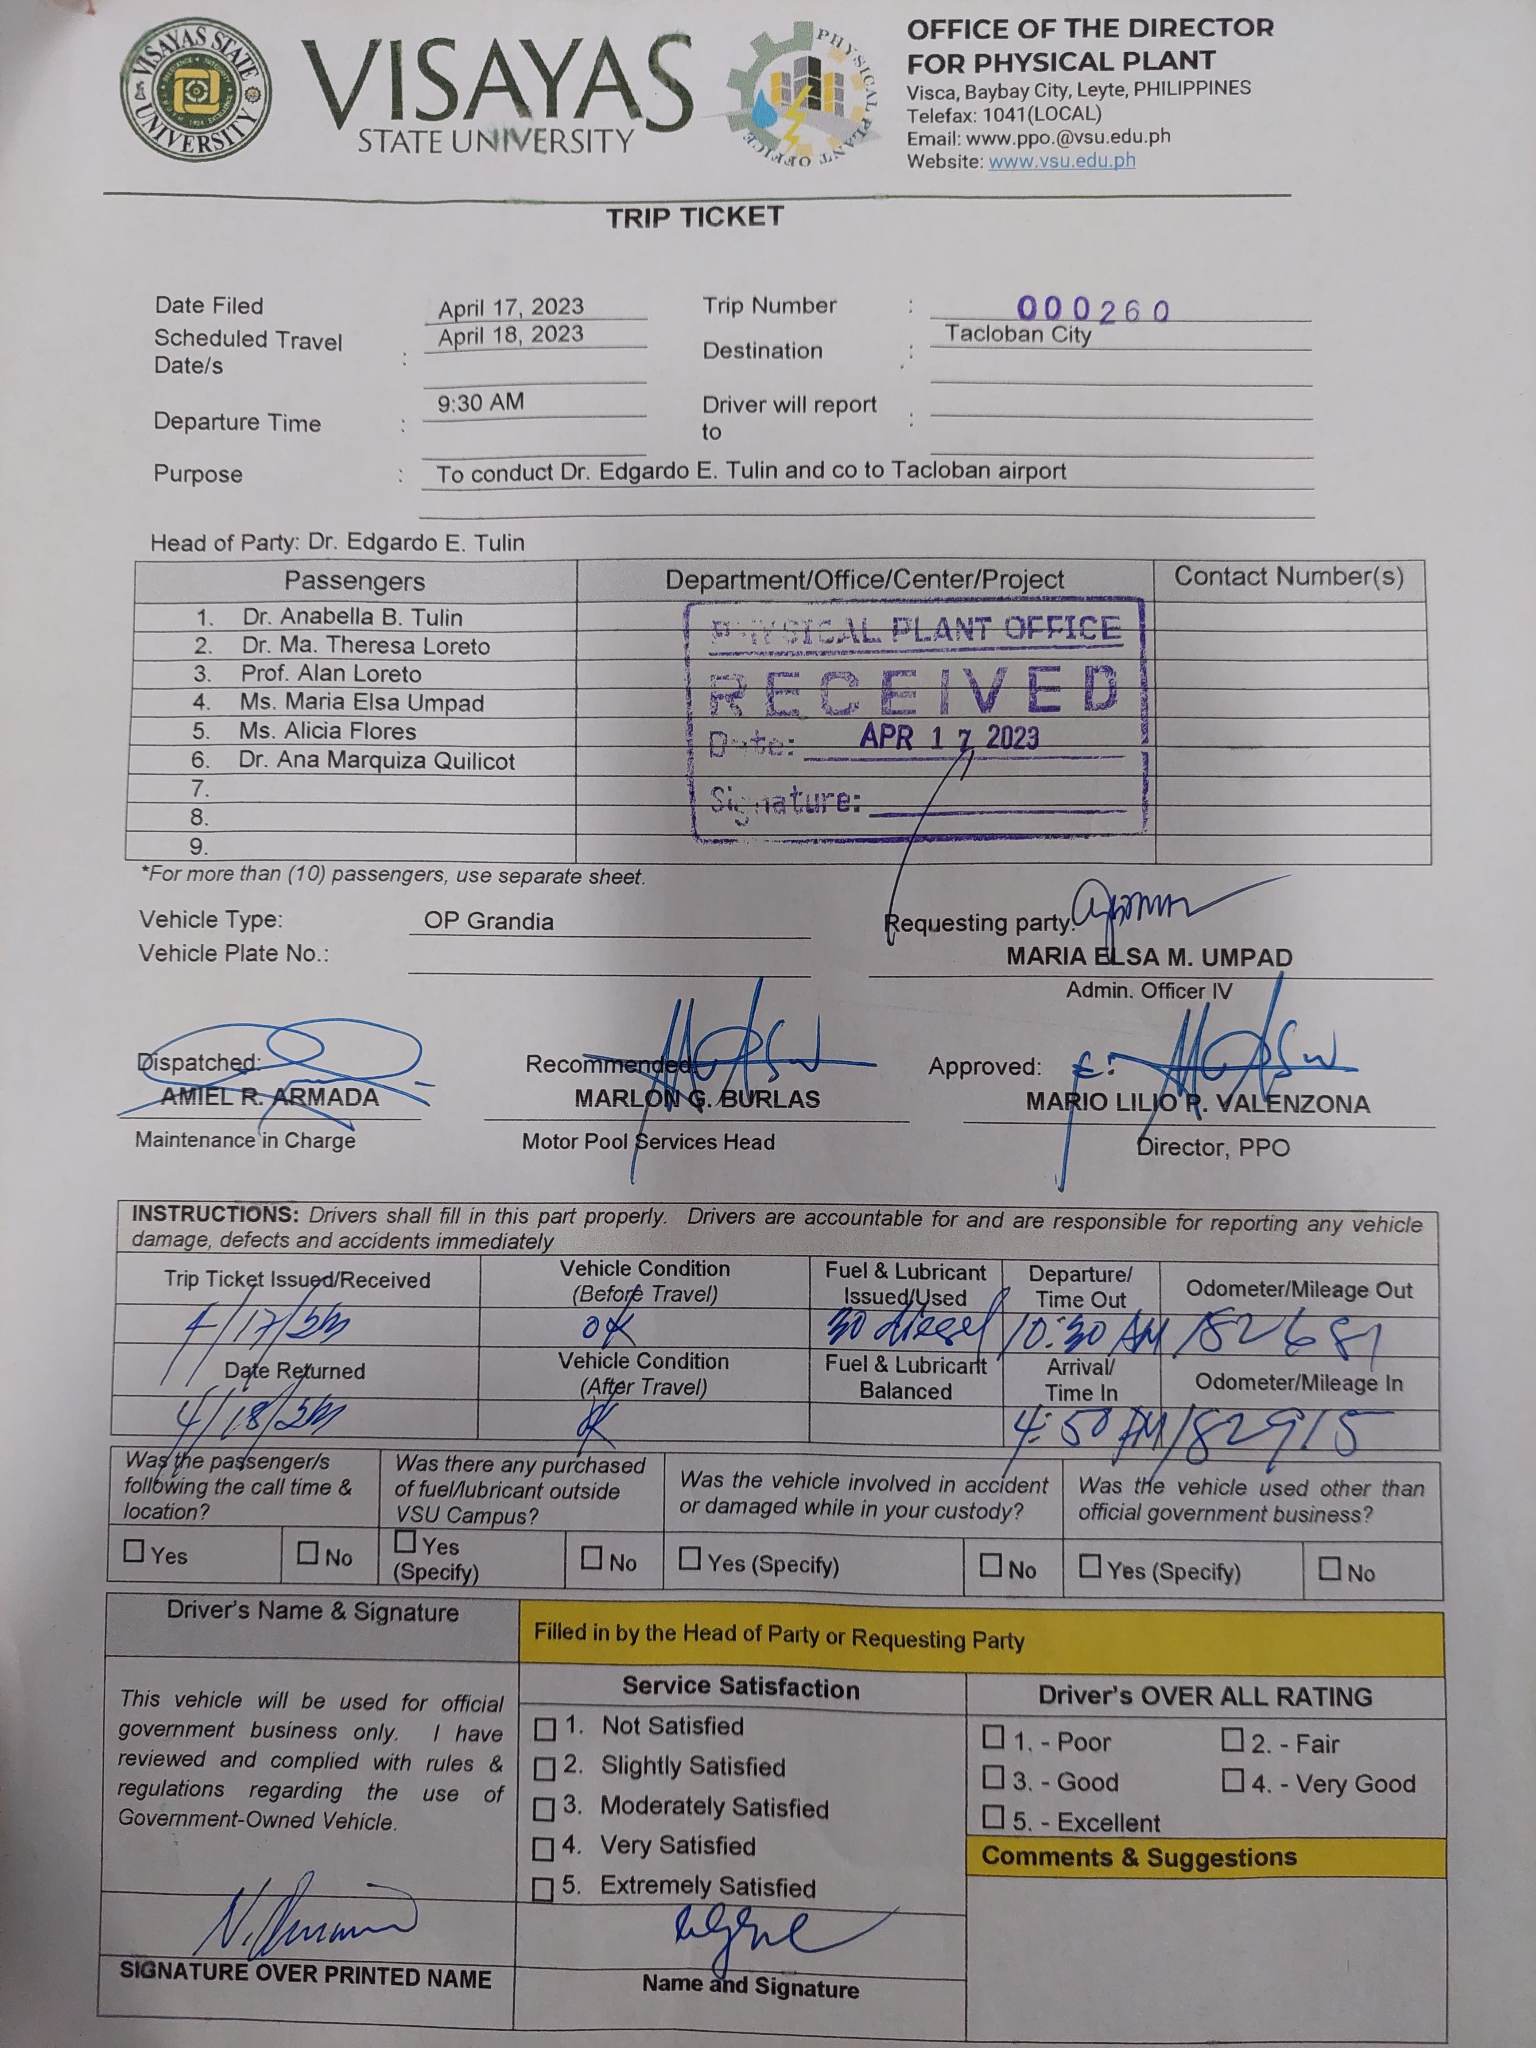 VISAYAS STATE UNIVERSITY
PHYSICAL PLANT OFFICE
VISAYAS
STATE UNIVERSITY
OFFICE OF THE DIRECTOR
FOR PHYSICAL PLANT
Visca, Baybay City, Leyte, PHILIPPINES
Telefax: 1041(LOCAL)
Email: www.ppo.@vsu.edu.ph
Website: www.vsu.edu.ph
TRIP TICKET
Date Filed April 17, 2023 Trip Number : 000260
Scheduled Travel Date/s : April 18, 2023 Destination : Tacloban City
Departure Time : 9:30 AM Driver will report to :
Purpose : To conduct Dr. Edgardo E. Tulin and co to Tacloban airport
Head of Party: Dr. Edgardo E. Tulin
Passengers Department/Office/Center/Project Contact Number(s)
1. Dr. Anabella B. Tulin
2. Dr. Ma. Theresa Loreto
3. Prof. Alan Loreto
4. Ms. Maria Elsa Umpad
5. Ms. Alicia Flores
6. Dr. Ana Marquiza Quilicot
7.
8.
9.
PHYSICAL PLANT OFFICE
RECEIVED
Date: APR 17 2023
Signature:
*For more than (10) passengers, use separate sheet.
Vehicle Type: OP Grandia Requesting party:
Vehicle Plate No.: MARIA ELSA M. UMPAD
Admin. Officer IV
Dispatched: Recommended: Approved:
AMIEL R. ARMADA MARLON G. BURLAS MARIO LILIO P. VALENZONA
Maintenance in Charge Motor Pool Services Head Director, PPO
INSTRUCTIONS: Drivers shall fill in this part properly. Drivers are accountable for and are responsible for reporting any vehicle
damage, defects and accidents immediately
Trip Ticket Issued/Received Vehicle Condition (Before Travel) Fuel & Lubricant Issued/Used Departure/ Time Out Odometer/Mileage Out
4/17/23 OK 30 diesel 10:30 AM 182681
Date Returned Vehicle Condition (After Travel) Fuel & Lubricant Balanced Arrival/ Time In Odometer/Mileage In
4/18/23 OK 4:50 PM 182915
Was the passenger/s following the call time & location? Was there any purchased of fuel/lubricant outside VSU Campus? Was the vehicle involved in accident or damaged while in your custody? Was the vehicle used other than official government business?
Yes No Yes (Specify) No Yes (Specify) No Yes (Specify) No
Driver's Name & Signature
Filled in by the Head of Party or Requesting Party
This vehicle will be used for official
government business only. I have
reviewed and complied with rules &
regulations regarding the use of
Government-Owned Vehicle.
SIGNATURE OVER PRINTED NAME
Service Satisfaction
1. Not Satisfied
2. Slightly Satisfied
3. Moderately Satisfied
4. Very Satisfied
5. Extremely Satisfied
Name and Signature
Driver's OVER ALL RATING
1. - Poor 2. - Fair
3. - Good 4. - Very Good
5. - Excellent
Comments & Suggestions